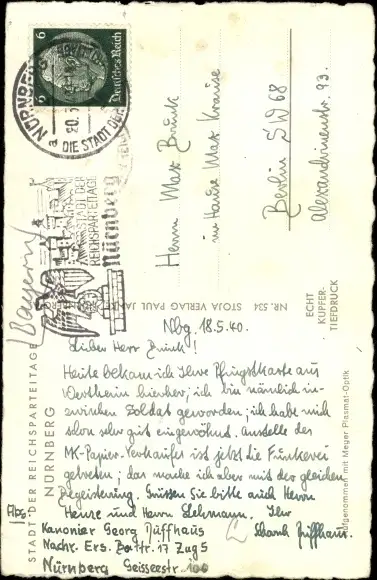 6 6
Deutsches Reich
NÜRNBERG
a 20.5
DIE STADT DER
STADT DER
REICHSPARTEITAGE
Nürnberg
(Bayern)
Herrn Max Brunk
im Hause Max Krause
Berlin SW 68
Alexandrinenstr. 93.
NR. 534 STOJA VERLAG PAUL
ECHT
KUPFER-
TIEFDRUCK
Aufgenommen mit Meyer Plasmat-Optik
STADT DER REICHSPARTEITAGE
NÜRNBERG
Nbg. 18.5.40.
Lieber Herr Brunk!
Heute bekam ich Ihre Pfingstkarte aus
Wertheim hierher; ich bin nämlich in-
zwischen Soldat geworden; ich habe mich
schon sehr gut eingewöhnt. Anstelle des
MK-Papier-Verkäufers ist jetzt die Funkerei
getreten; das mache ich aber mit der gleichen
Begeisterung. Grüssen Sie bitte auch Herrn
Henze und Herrn Lehmann. Ihr
Abs:
Kanonier Georg Düffhaus
Nachr. Ers. Battr. 17 Zug 5
Nürnberg Geisseestr.